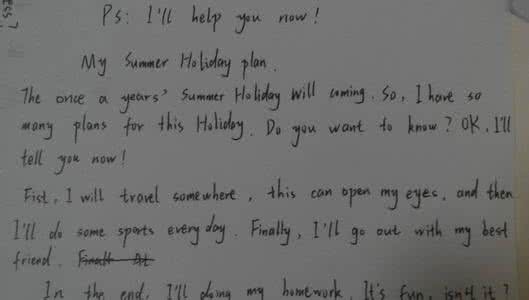 Ps: I'll help you now!
My Summer Holiday plan.
The once a years' Summer Holiday will coming. So, I have so
many plans for this Holiday. Do you want to know? OK, I'll
tell you now!
Fist, I will travel somewhere, this can open my eyes, and then
I'll do some sports every day. Finally, I'll go out with my best
friend.
In the end, I'll doing my homework. It's fun, isn't it?